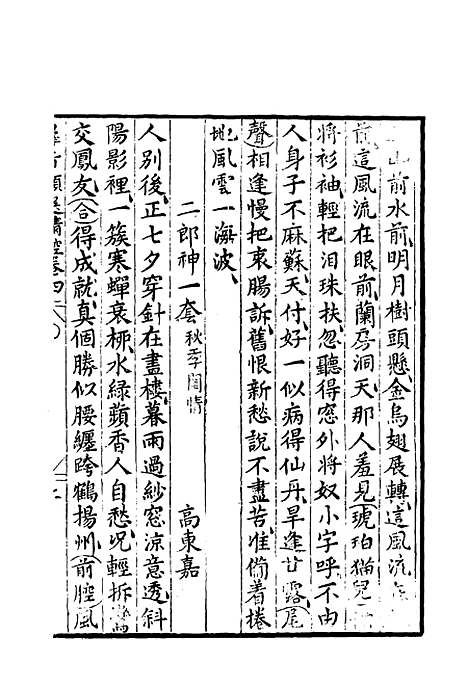 山前水前明月樹頭懸金烏翅展轉這風流
前這風流在眼前蘭房洞天那人羞見琥珀猫兒
將衫袖輕把泪珠扶忽聽得窓外將奴小字呼不由
人身子不麻蘇天付好一似病得仙丹旱逢甘露尾
聲相逢慢把衷腸訴舊恨新愁說不盡苦准俻着捲
地風雲一海波
二郎神一套 秋季閨情 高東嘉
人別後正七夕穿針在畫樓暮雨過紗窓涼意透斜
陽影裡一簇寒蟬衰柳水綠蘋香人自愁况輕拆鸞
交鳳友合得成就真個勝似腰纏跨鶴揚州前腔風
卷四